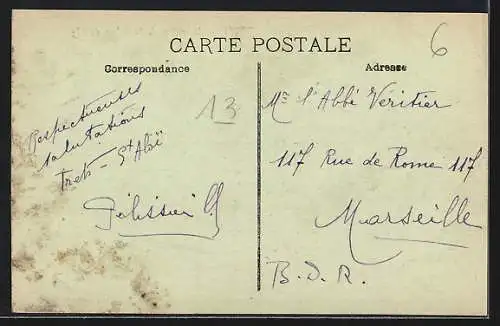 CARTE POSTALE
Correspondance
Adresse
6
13
Respectueuses
salutations
Mr l'Abbé Veritier
117 Rue de Rome 117
Marseille
B. D. R.